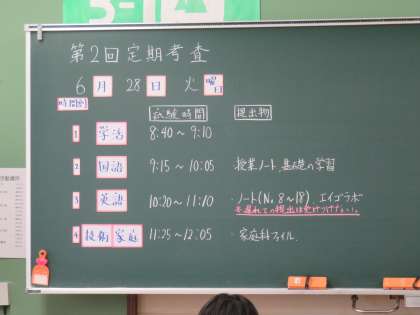 3-1
第2回定期考査
6月 28日 火曜日
時間割 試験時間 提出物
1 学活 8:40～9:10
2 国語 9:15～10:05 授業ノート、基礎の学習
3 英語 10:20～11:10 ・ノート(No.8～18) エイゴラボ
※遅れての提出は受けつけない。
4 技術 家庭 11:25～12:05 ・家庭科ファイル